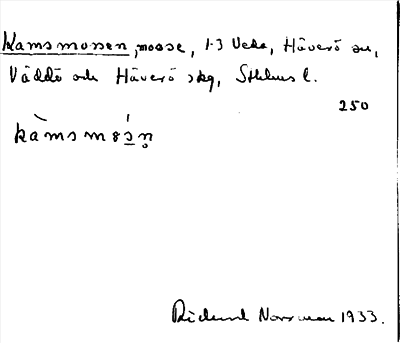 Kamsmossen, mosse, 1-3 Veda, Häverö sn,
Väddö och Häverö skg, Sthlms l.
250
kàmsmósn̥
Rickard Norrman 1933.